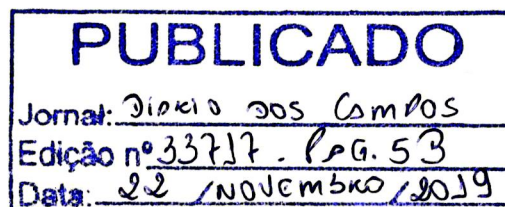 PUBLICADO
Jornal: Diário dos Campos
Edição nº 33717 . PAG. 5B
Data: 22 / NOVEMBRO / 2019